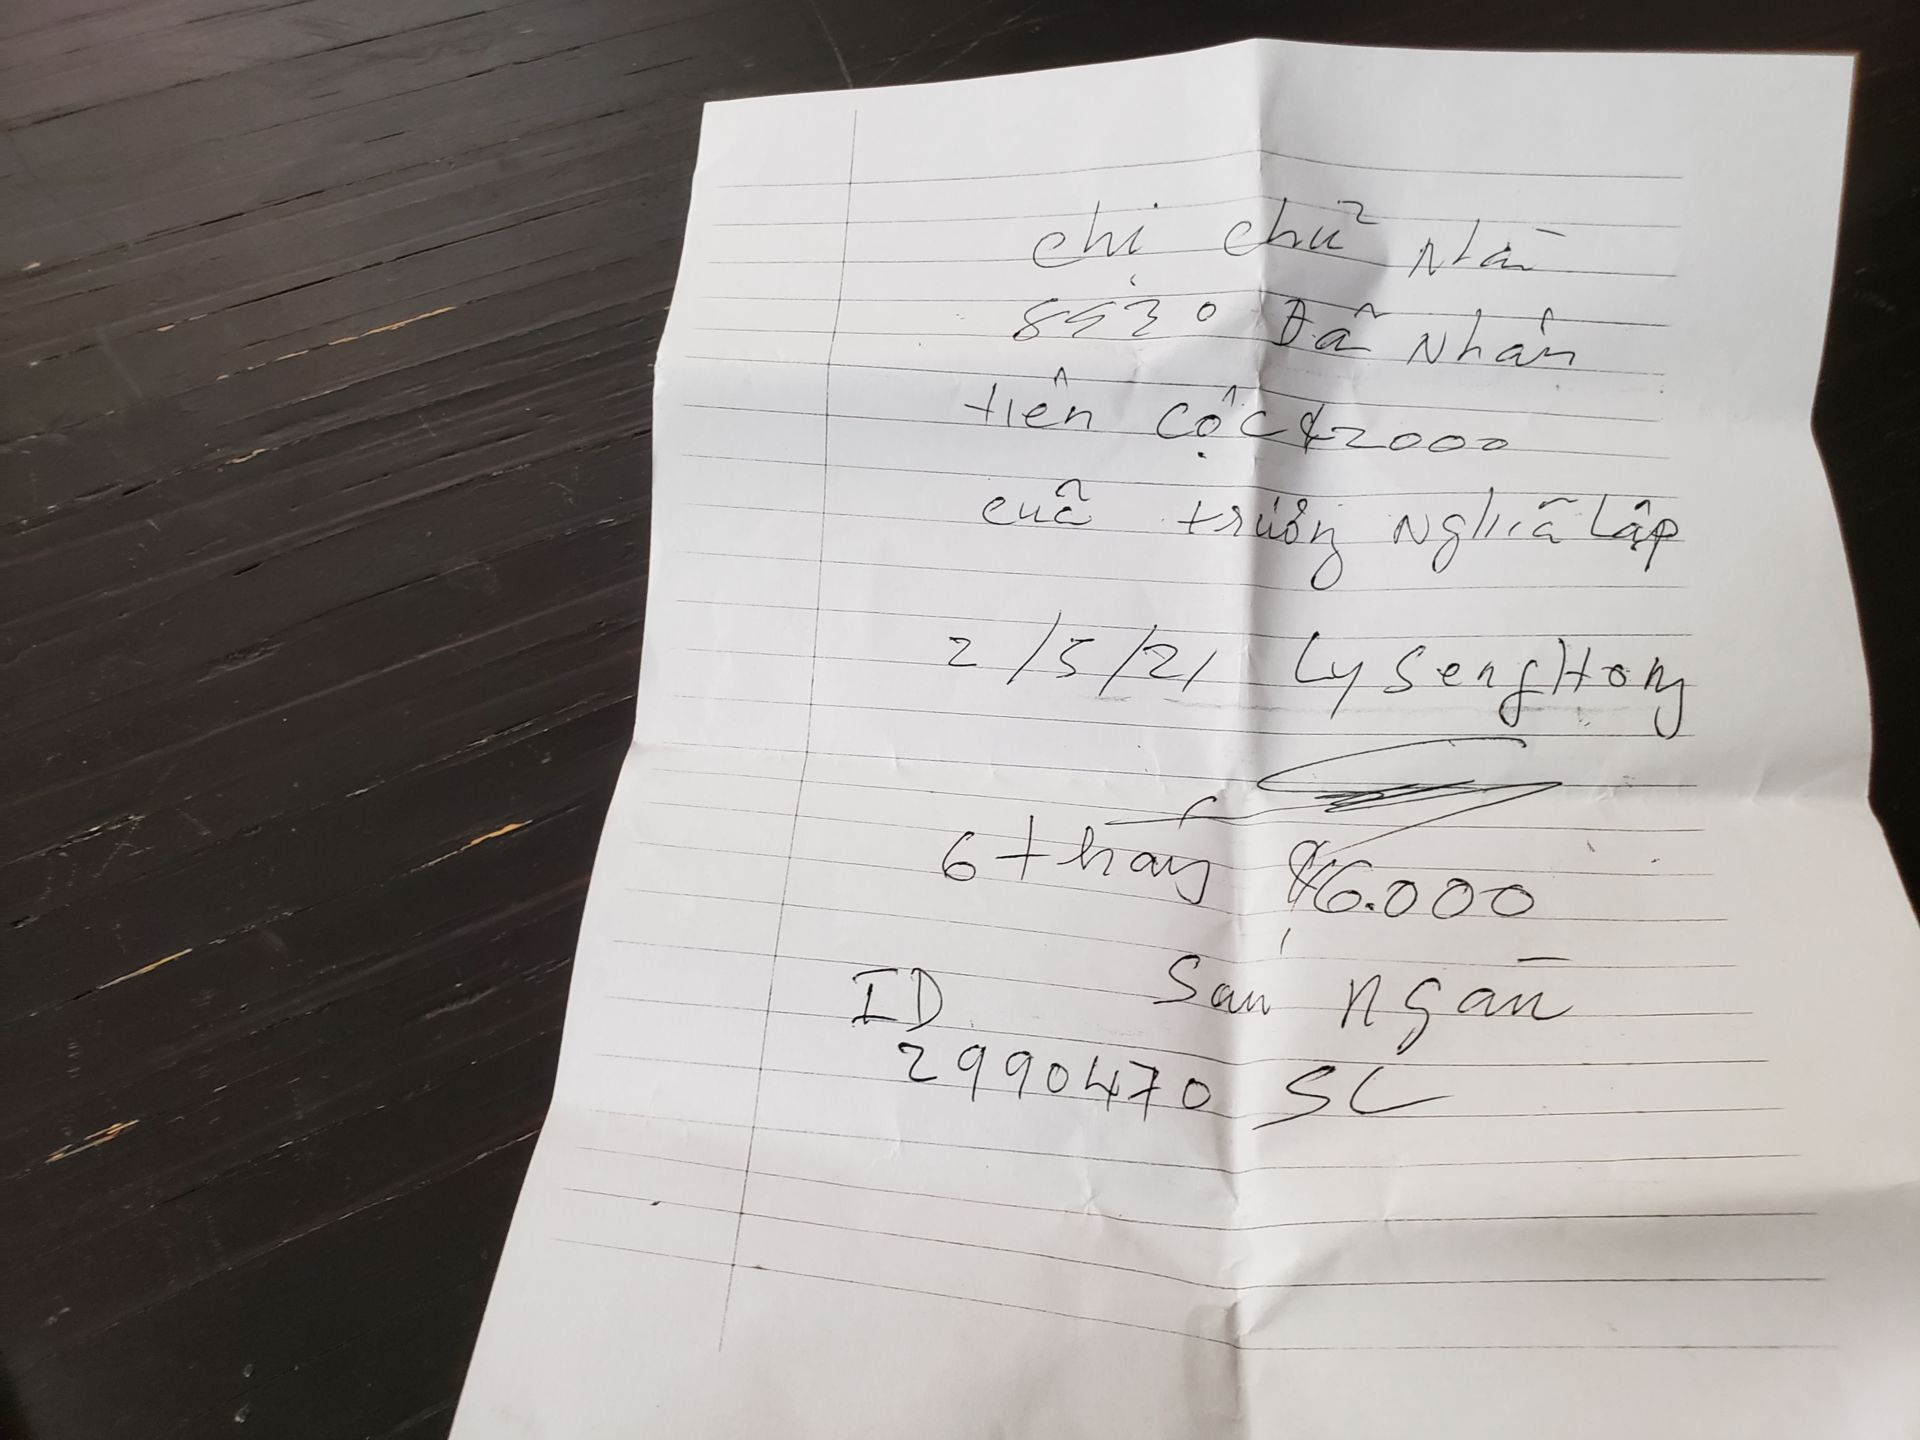 chị chủ nhà
8530 Đã nhận
tiền cộc $2000
cuã trương Nghiã Lập
2/5/21 Ly Seng Hong
6 tháng $6.000
Sáu ngàn
ID
2990470 SC